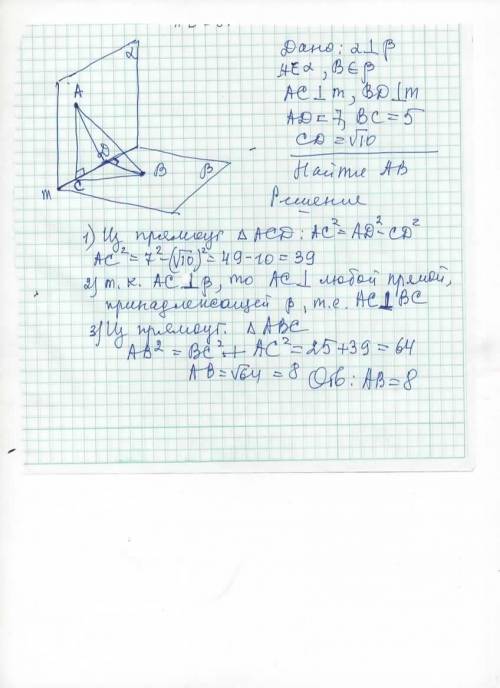 α
A
D
B
β
C
m
Дано: α⊥β
A∈α, B∈β
AC⊥m, BD⊥m
AD=7, BC=5
CD=√10
Найти AB
Решение
1) Из прямоуг. △ACD: AC²=AD²-CD²
AC²=7²-(√10)²=49-10=39
2) т.к. AC⊥β, то AC⊥ любой прямой,
принадлежащей β, т.е. AC⊥BC
3) Из прямоуг. △ABC
AB²=BC²+AC²=25+39=64
AB=√64=8 Отв: AB=8